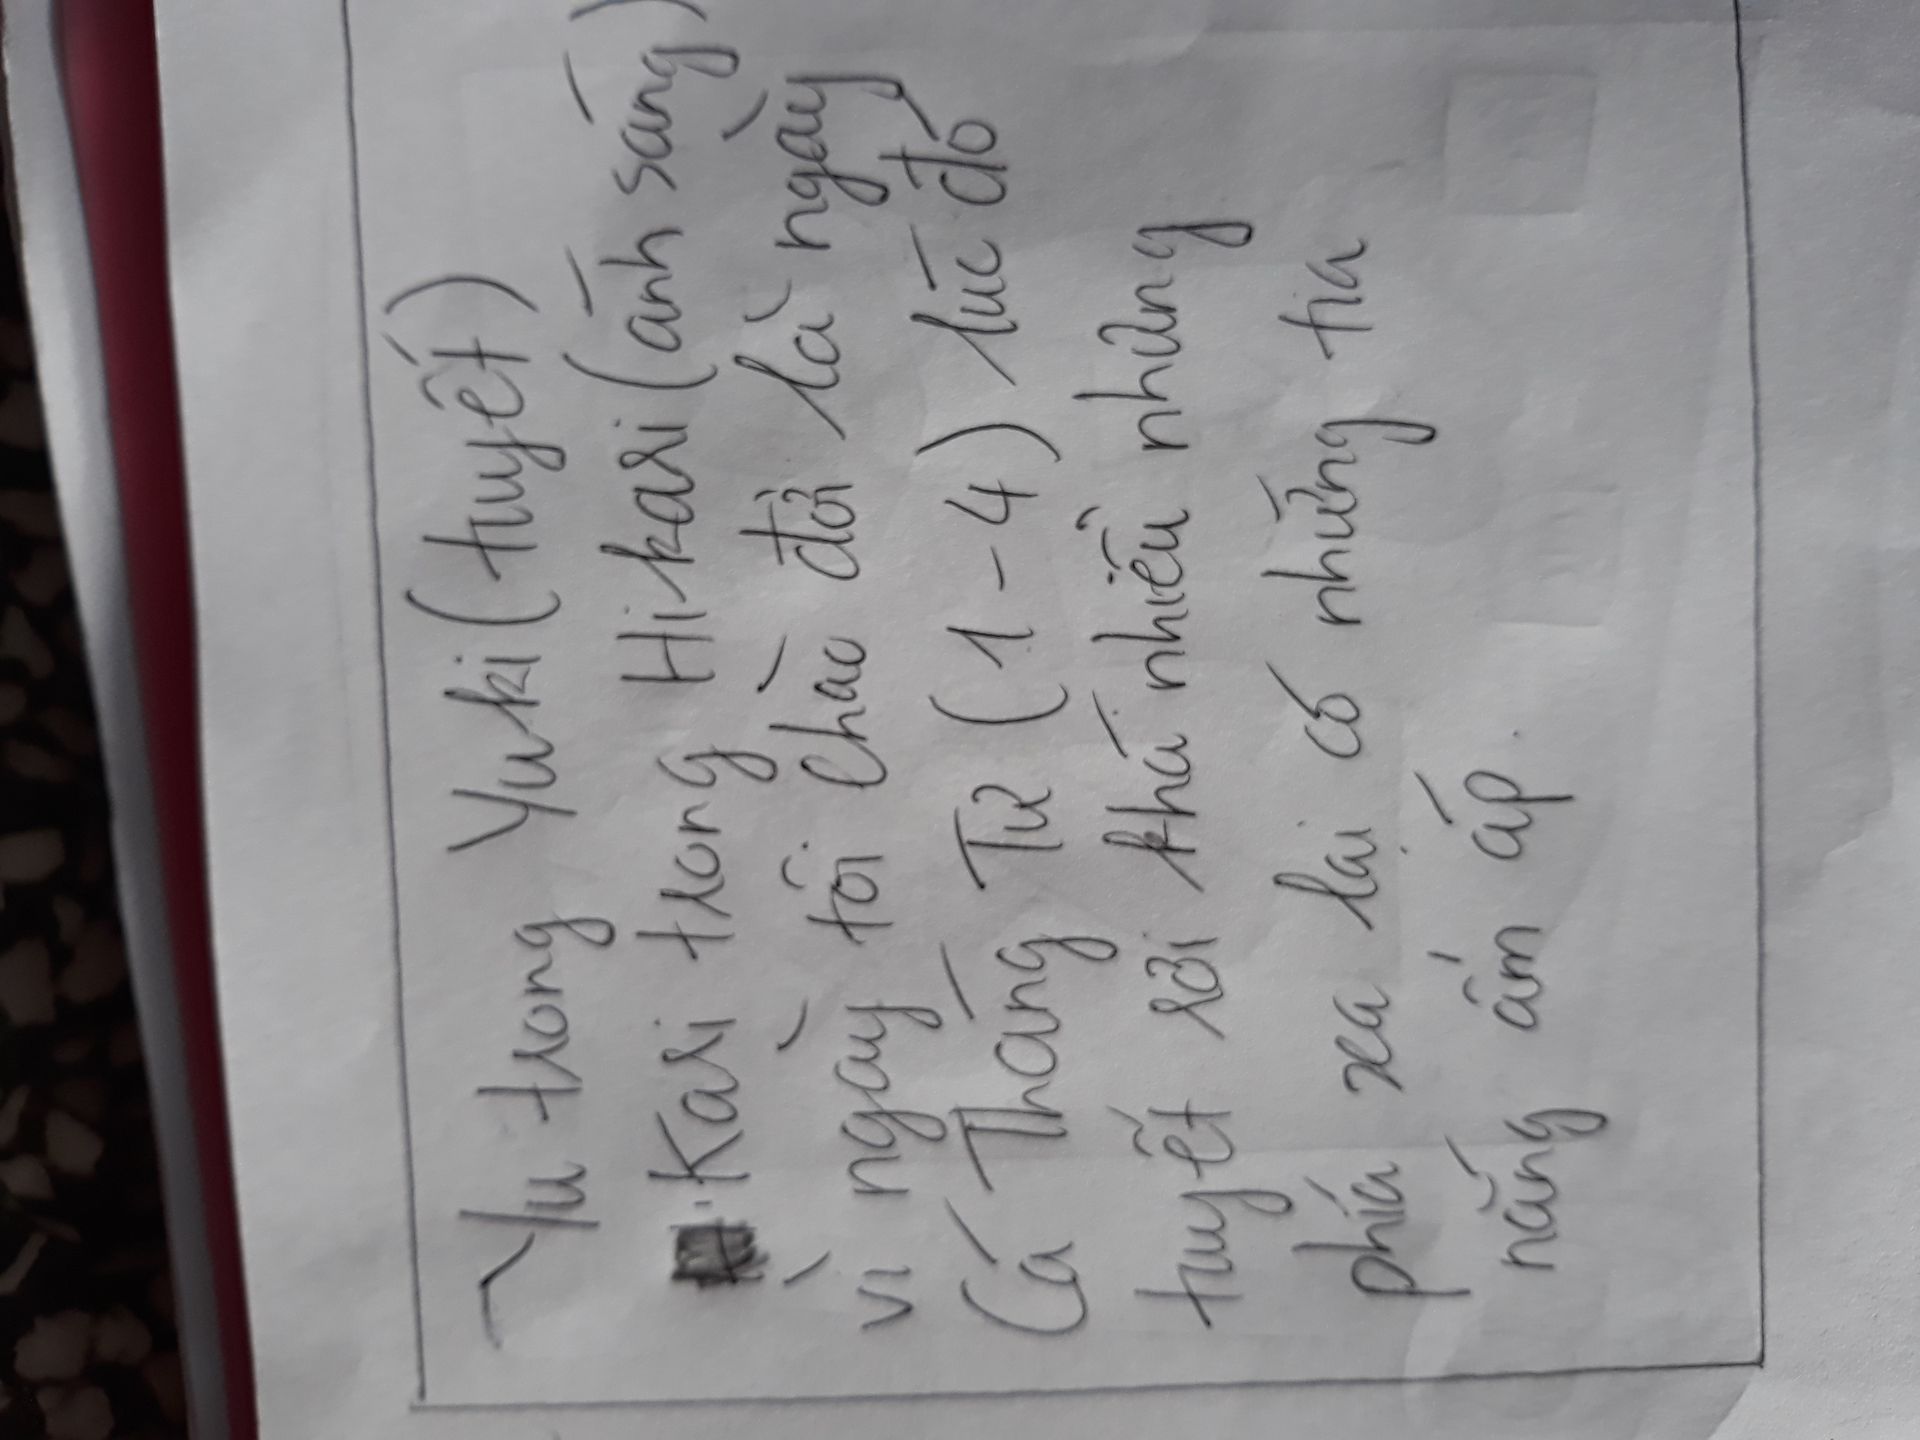 Yu trong Yuki (tuyết)
Kari trong Hikari (ánh sáng)
vì ngày tôi chào đời là ngày
Cá Tháng Tư (1-4) lúc đó
tuyết rơi khá nhiều nhưng
phía xa lại có những tia
nắng ấm áp.